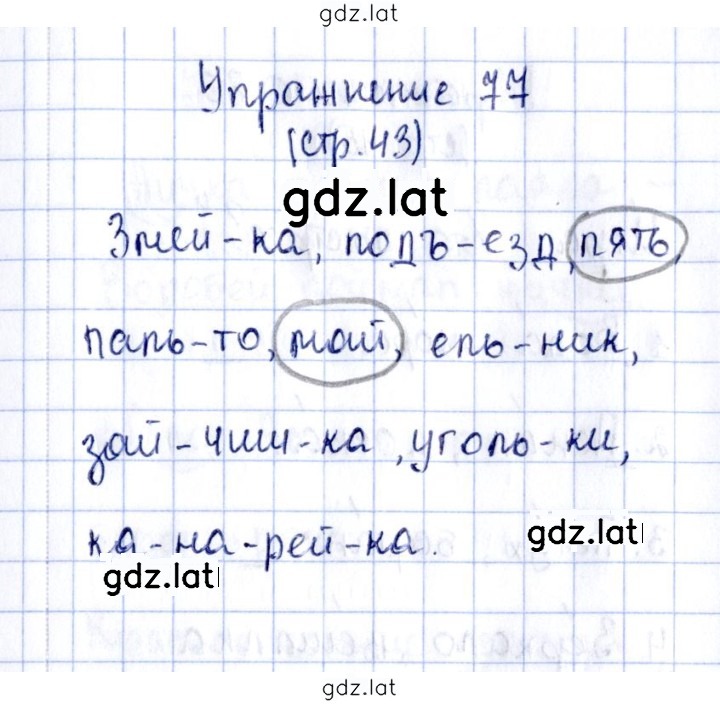 gdz.lat
Упражнение 77
(стр.43)
gdz.lat
Змей-ка, подъ-езд, пять,
паль-то, май, ель-ник,
зай-чиш-ка, уголь-ки,
ка-на-рей-ка.
gdz.lat
gdz.lat
gdz.lat